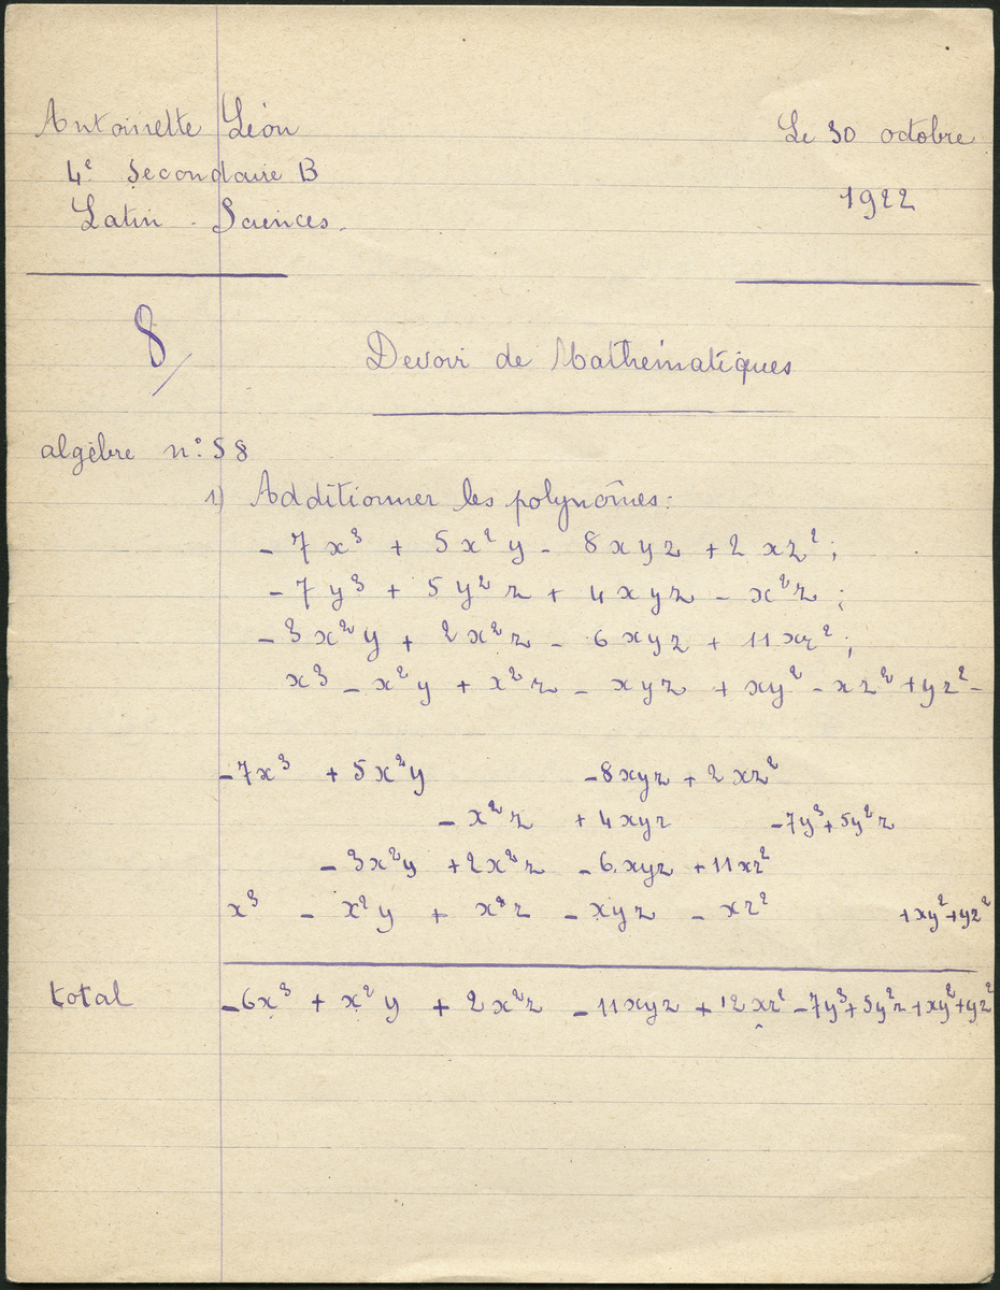 Antoinette Léon
Le 30 octobre
4e Secondaire B
1922
Latin - Sciences.
8/
Devoir de Mathématiques
algèbre n° 58
1) Additionner les polynômes:
- 7x³ + 5x²y - 8xyz + 2xz²;
- 7y³ + 5y²z + 4xyz - x²z;
- 3x²y + 2x²z - 6xyz + 11xz²;
x³ - x²y + x²z - xyz + xy² - xz² + yz² -
- 7x³ + 5x²y - 8xyz + 2xz²
- x²z + 4xyz - 7y³ + 5y²z
- 3x²y + 2x²z - 6xyz + 11xz²
x³ - x²y + x²z - xyz - xz² + xy² + yz²
total - 6x³ + x²y + 2x²z - 11xyz + 12xz² - 7y³ + 5y²z + xy² + yz²